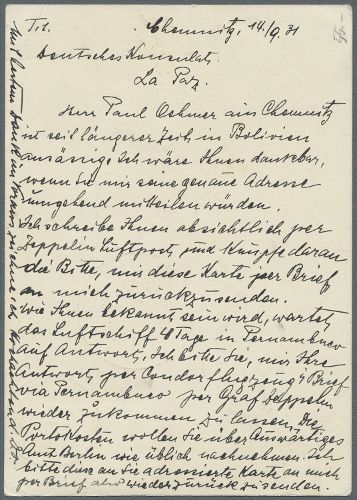 Tit. Chemnitz, 14/9. 31
Deutsches Konsulat,
La Paz.
Herr Paul Oehmer aus Chemnitz
ist seit längerer Zeit in Bolivien
ansässig. Ich wäre Ihnen dankbar,
wenn Sie mir seine genaue Adresse
umgehend mitteilen würden.
Ich schreibe Ihnen absichtlich per
Zeppelin Luftpost, und knüpfe daran
die Bitte, mir diese Karte per Brief
an mich zurückzusenden.
Wie Ihnen bekannt sein wird, wartet
das Luftschiff 4 Tage in Pernambuco
auf Antwort. Ich bitte Sie, mir Ihre
Antwort per Condorflugzeug & Brief
via Pernambuco per Graf Zeppelin
wieder zukommen zu lassen. Die
Portokosten wollen Sie über Auswärtiges
Amt Berlin wie üblich nachnehmen. Ich
bitte diese an Sie adressierte Karte an mich
per Brief also wieder zurück zu senden.
Mit bestem Dank im Voraus